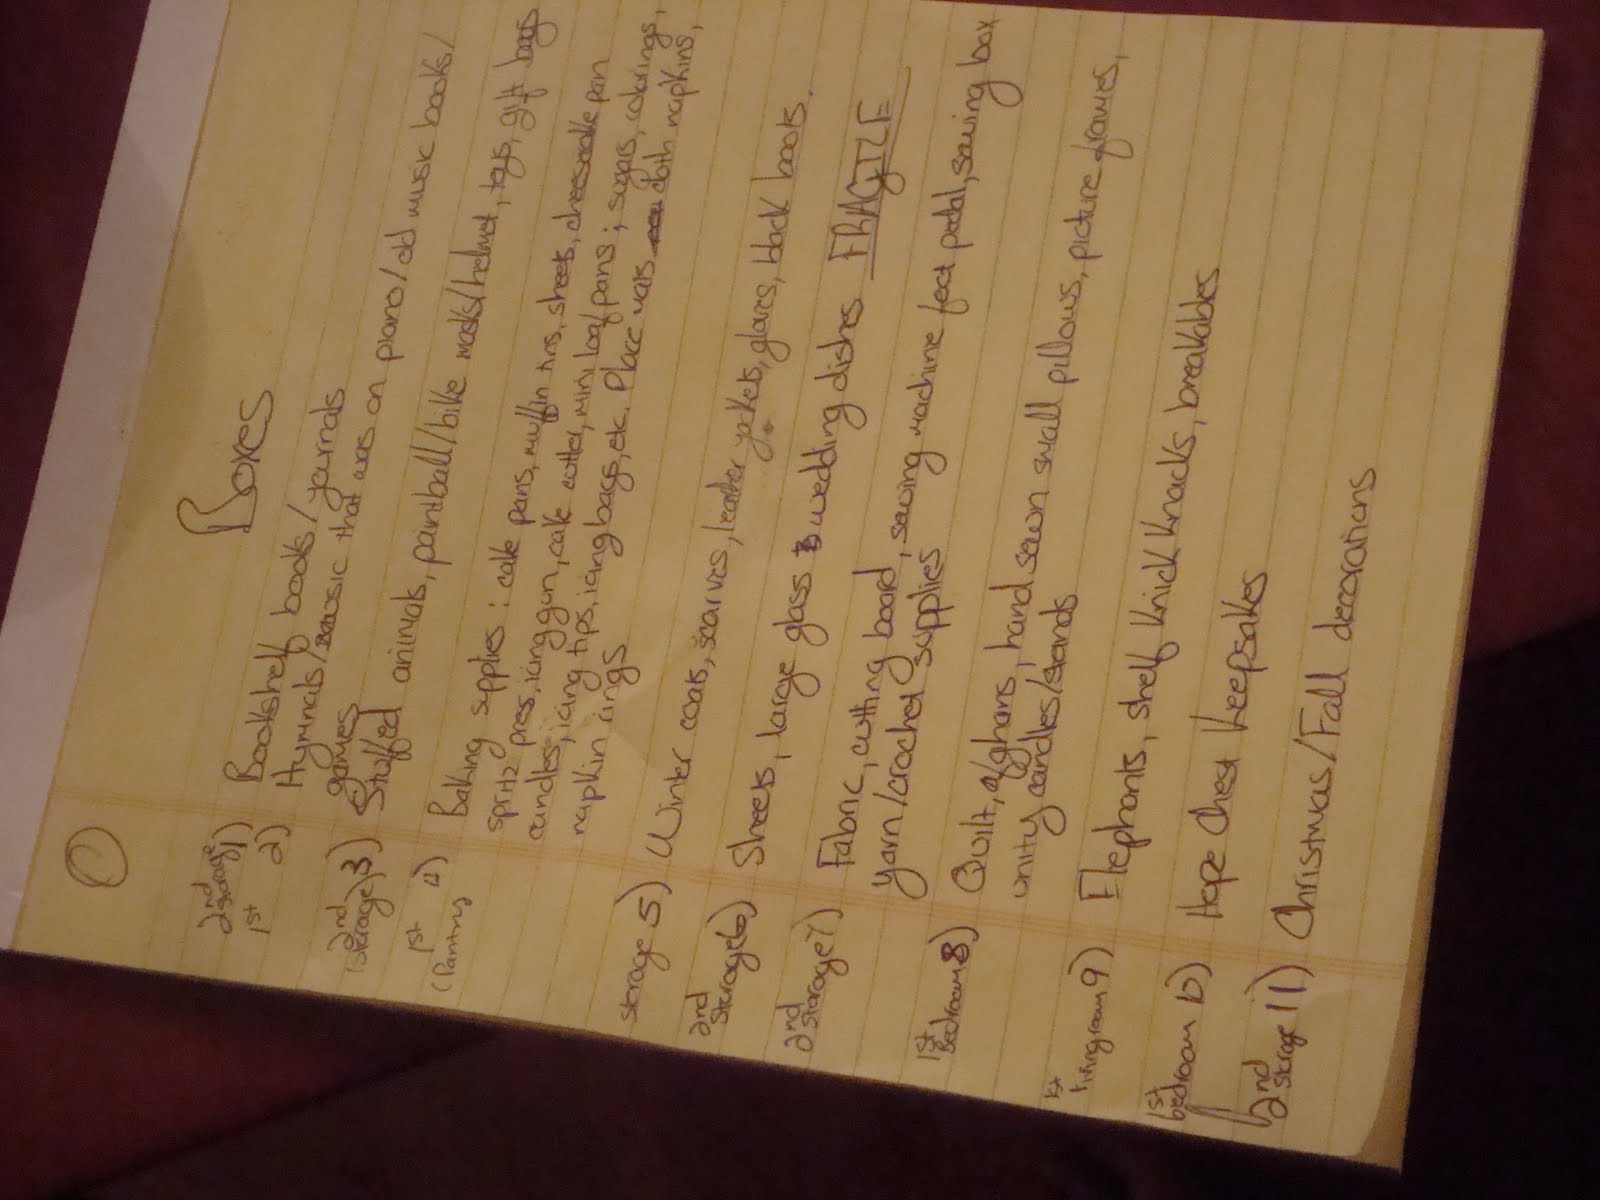 1
Boxes
2nd storage 1) Bookshelf books/journals
1st 2) Hymnals/music that was on piano/old music books/
games
2nd storage 3) Stuffed animals, paintball/bike masks/helmet, toys, gift bags
1st (Pantry) 4) Baking supplies: cake pans, muffin tins, sheets, cheesecake pan
spritz press, icing gun, cake cutter, mini loaf pans; sugars, colorings,
candles, icing tips, icing bags, etc. Place mats cloth napkins,
napkin rings
storage 5) Winter coats, scarves, leather jackets, gloves, black boots.
2nd storage 6) Sheets, large glass wedding dishes FRAGILE
2nd storage 7) Fabric, cutting board, sewing machine foot pedal, sewing box
yarn/crochet supplies
1st Bedroom 8) Quilt, afghans, hand sewn small pillows, picture frames,
unity candles/stands
1st livingroom 9) Elephants, shelf knick knacks, breakables
1st bedroom 10) Hope Chest keepsakes
2nd storage 11) Christmas/Fall decorations